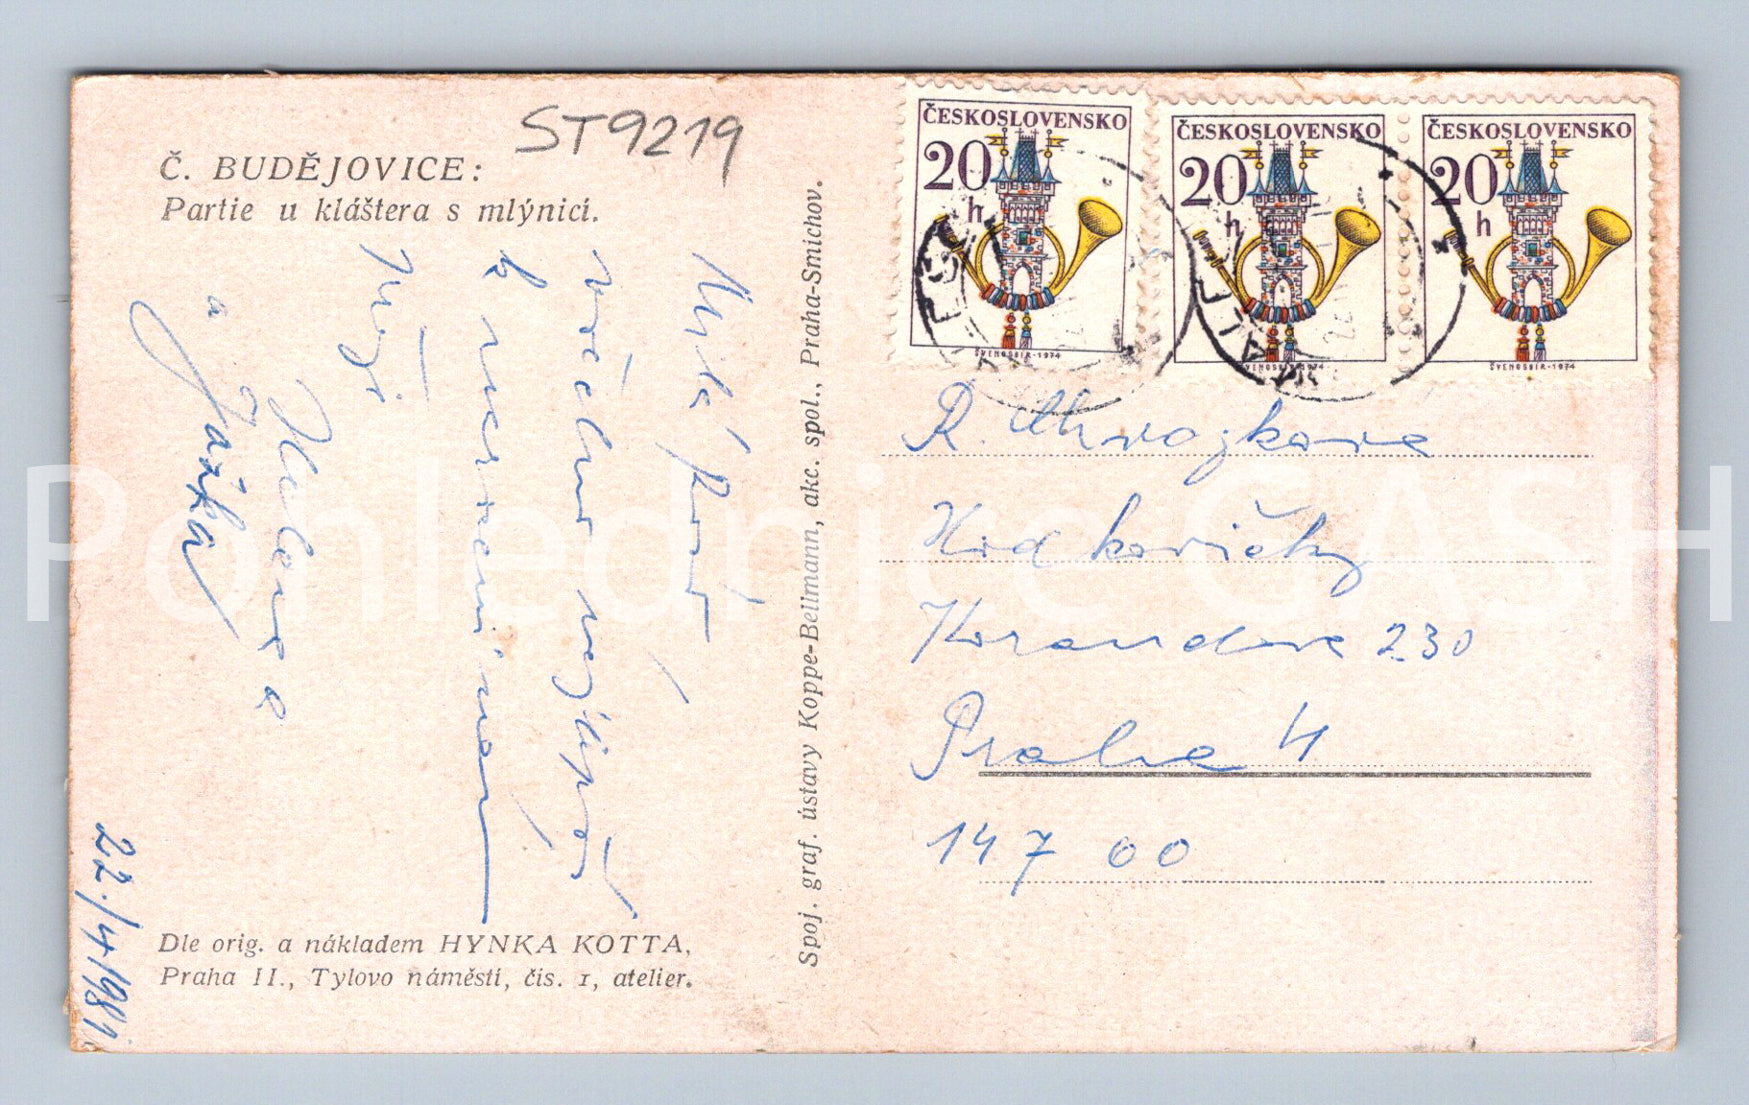 ST9219
Č. BUDĚJOVICE:
Partie u kláštera s mlýnicí.
Milá
všechno nejlepší
k narozeninám
přeje
Hulanova
a Jarka
22./4/1981
Dle orig. a nákladem HYNKA KOTTA,
Praha II., Tylovo náměstí, čís. 1, atelier.
Spoj. graf. ústavy Koppe-Bellmann, akc. spol., Praha-Smíchov.
ČESKOSLOVENSKO
20 h
ŠVENGSBÍR-1974
ČESKOSLOVENSKO
20 h
ŠVENGSBÍR-1974
ČESKOSLOVENSKO
20 h
ŠVENGSBÍR-1974
R. Mrozkova
Hodkovičky
Korandova 230
Praha 4
147 00
Pohlednice GASH